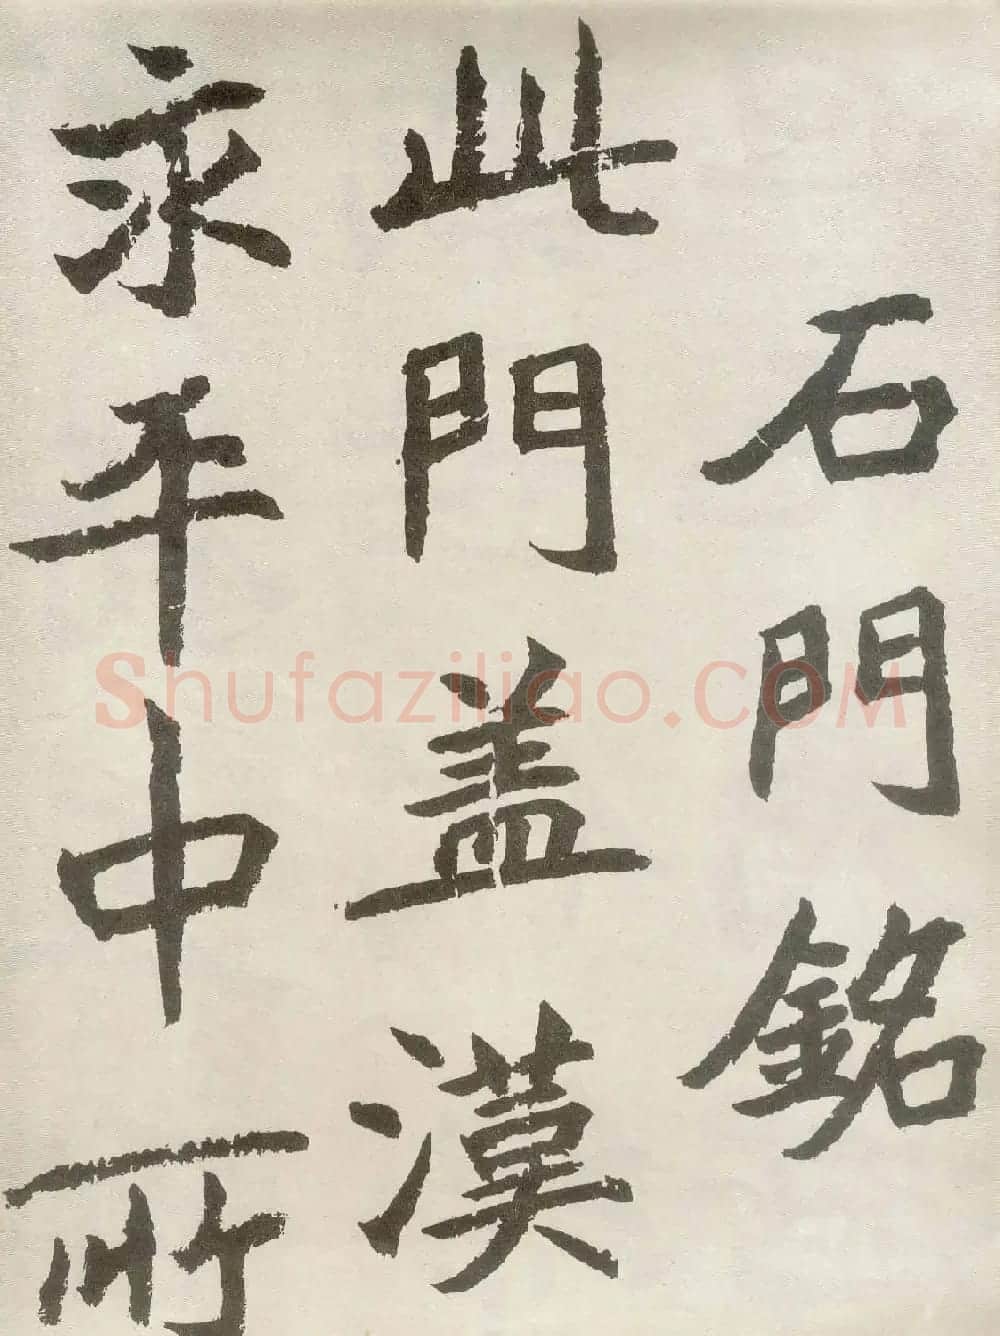 石門銘
此門盖漢
永平中所
Shufaziliao.COM